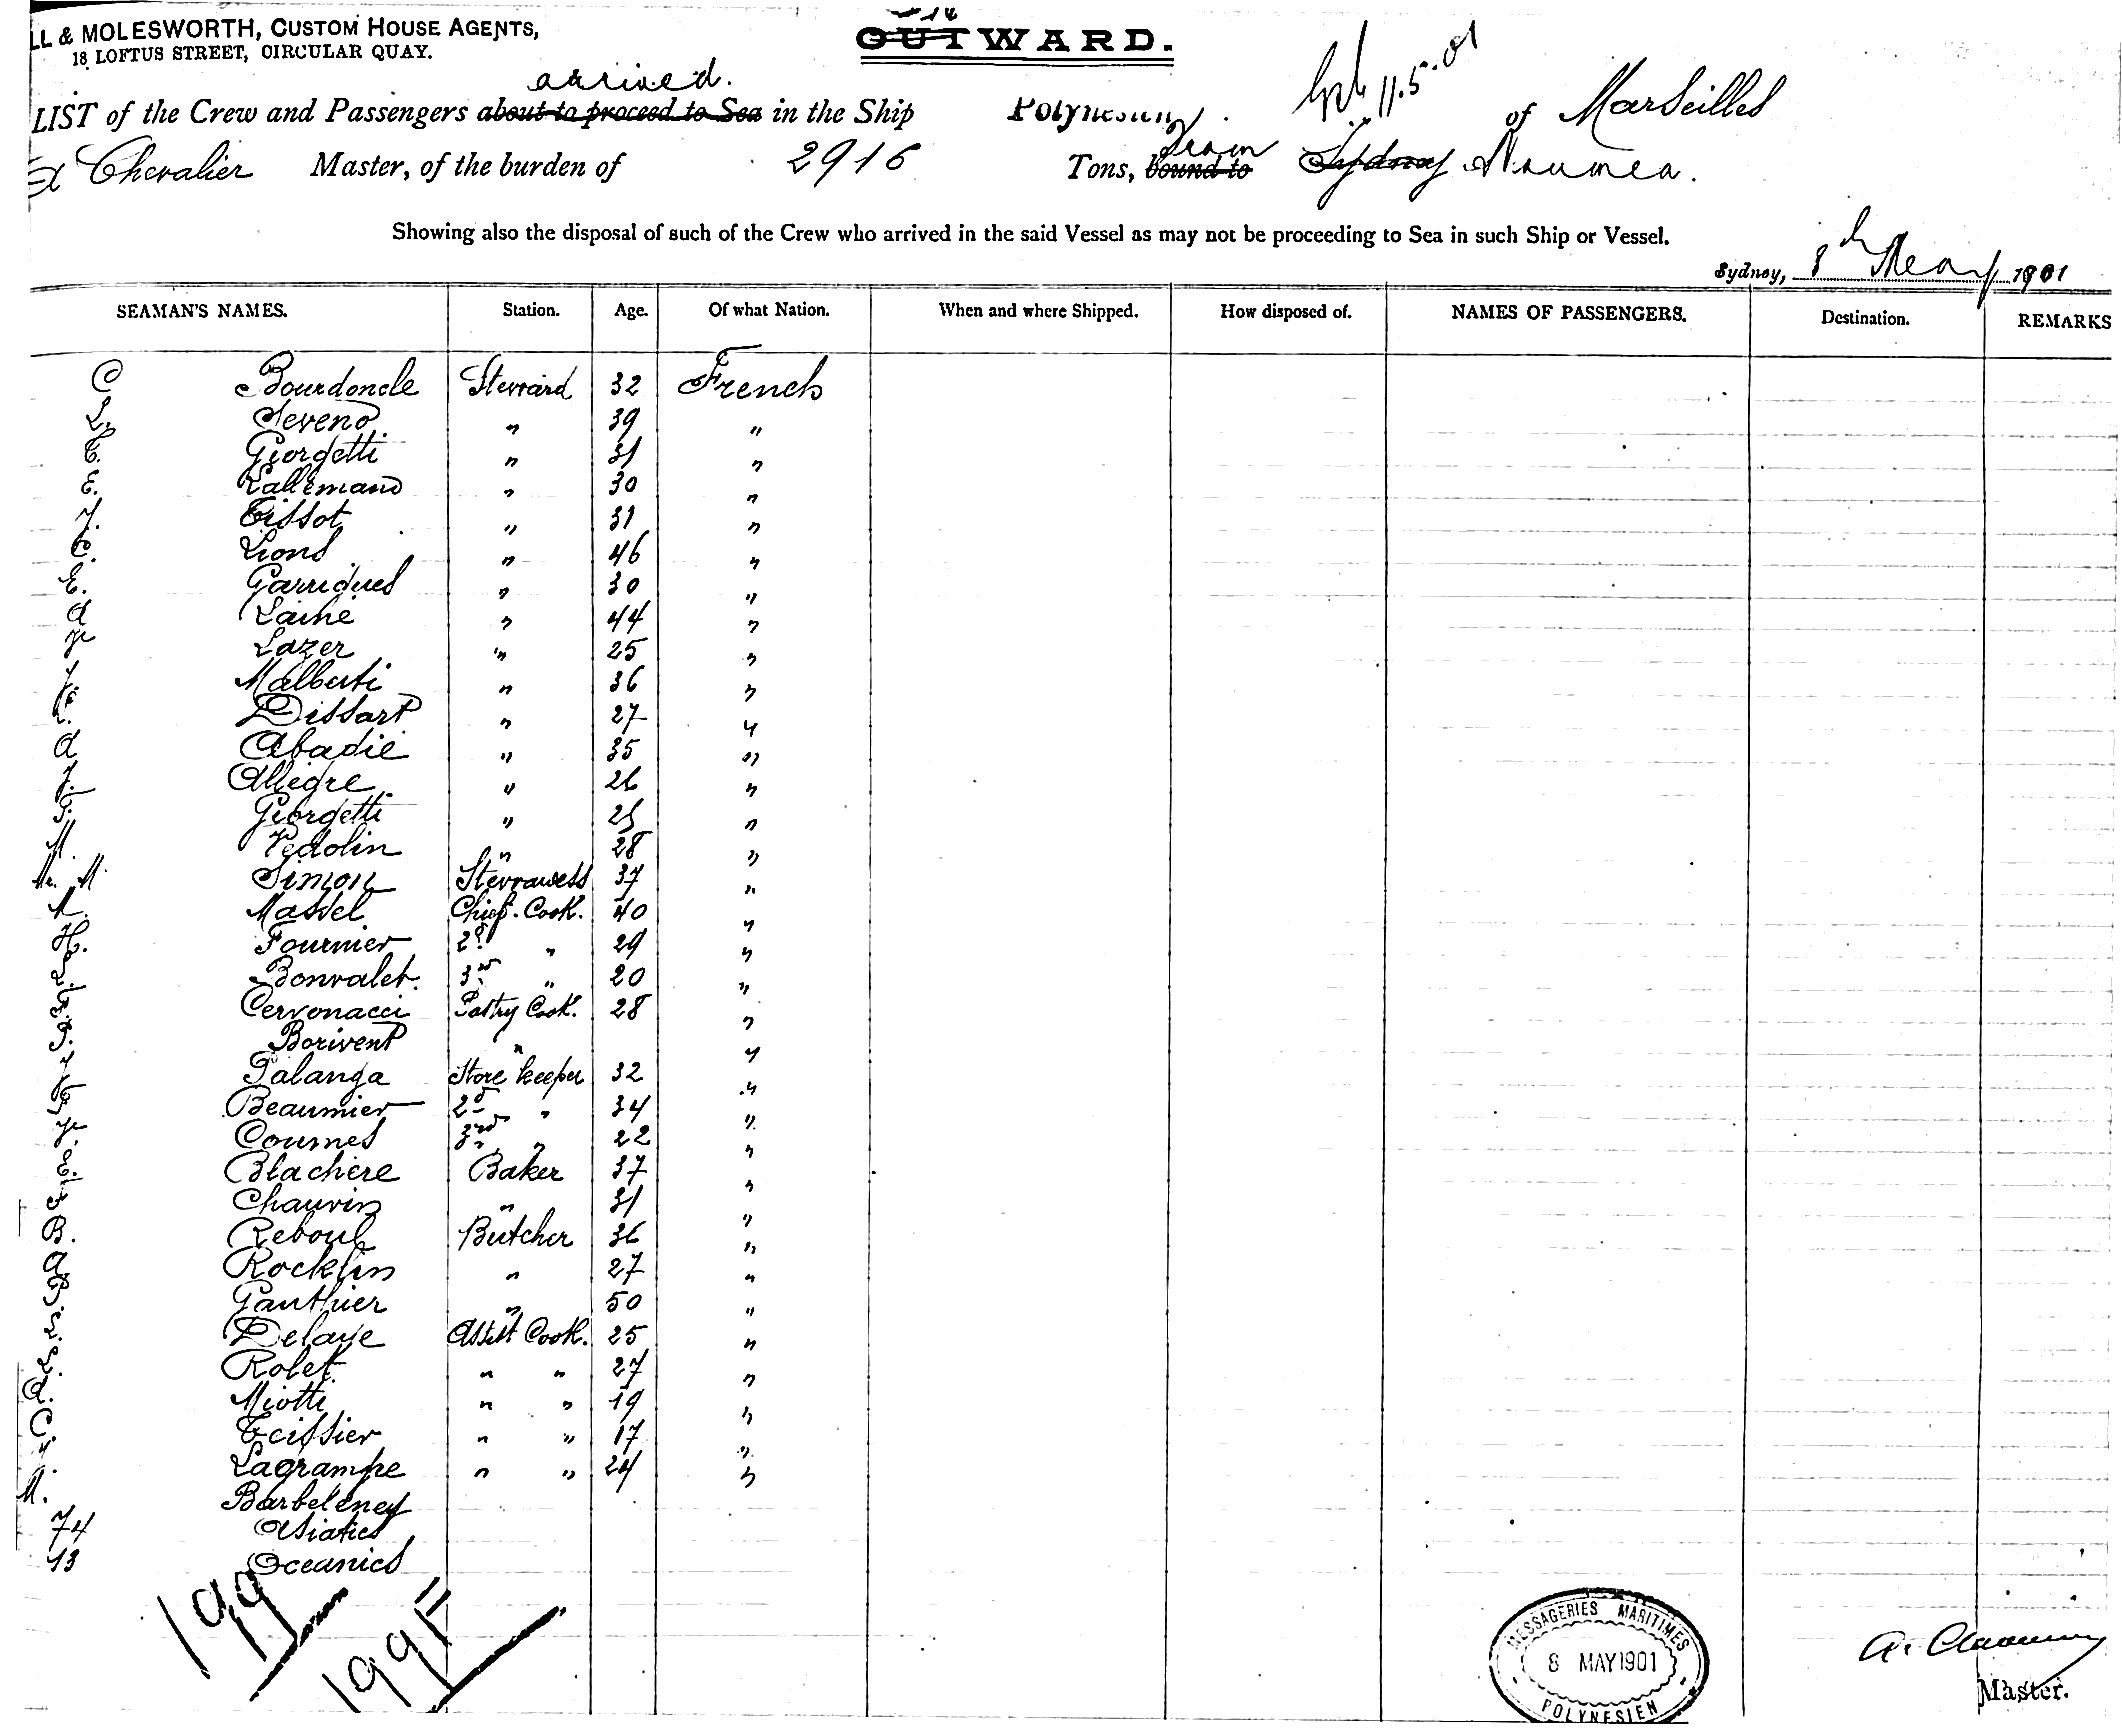 LL & MOLESWORTH, CUSTOM HOUSE AGENTS,
18 LOFTUS STREET, CIRCULAR QUAY.
OUTWARD.
11.5.01
arrived.
LIST of the Crew and Passengers about to proceed to Sea in the Ship Polynesien of Marseilles
Chevalier Master, of the burden of 2916 Tons, bound to from Sydney Noumea.
Showing also the disposal of such of the Crew who arrived in the said Vessel as may not be proceeding to Sea in such Ship or Vessel.
Sydney, 8th May 1901
SEAMAN'S NAMES. Station. Age. Of what Nation. When and where Shipped. How disposed of. NAMES OF PASSENGERS. Destination. REMARKS
C Bourdoncle Steward 32 French
L. Seveno " 39 "
T. Giorgetti " 31 "
E. Lallemand " 30 "
J. Tissot " 31 "
C. Lions " 46 "
E. Garrigues " 30 "
A Lainé " 44 "
Lazer " 25 "
Malberti " 36 "
Dissart " 27 "
A Abadie " 35 "
J. Allegre " 26 "
Giorgetti " 25 "
M. Pedolin " 28 "
M. Simon Stewardess 37 "
Massel Chief Cook. 40 "
H. Fournier 2d " 29 "
Bonvalet 3rd " 20 "
Cervonacci Pastry Cook. 28 "
Borivent " "
Palanga Store keeper 32 "
Beaumier 2d " 34 "
Coumes 3rd " 22 "
E. Blachere Baker 37 "
F Chauvin " 31 "
B. Reboul Butcher 36 "
A. Rocklin " 27 "
P Gauthier " 50 "
L. Delaye Assist Cook. 25 "
L. Rolet " " 27 "
A. Miotti " " 19 "
C. Teissier " " 17 "
Lagrampe " " 24 "
M. Barbeleney
74 Asiatics
13 Oceanics
199
199F
MESSAGERIES MARITIMES
8 MAY 1901
POLYNESIEN
Master.